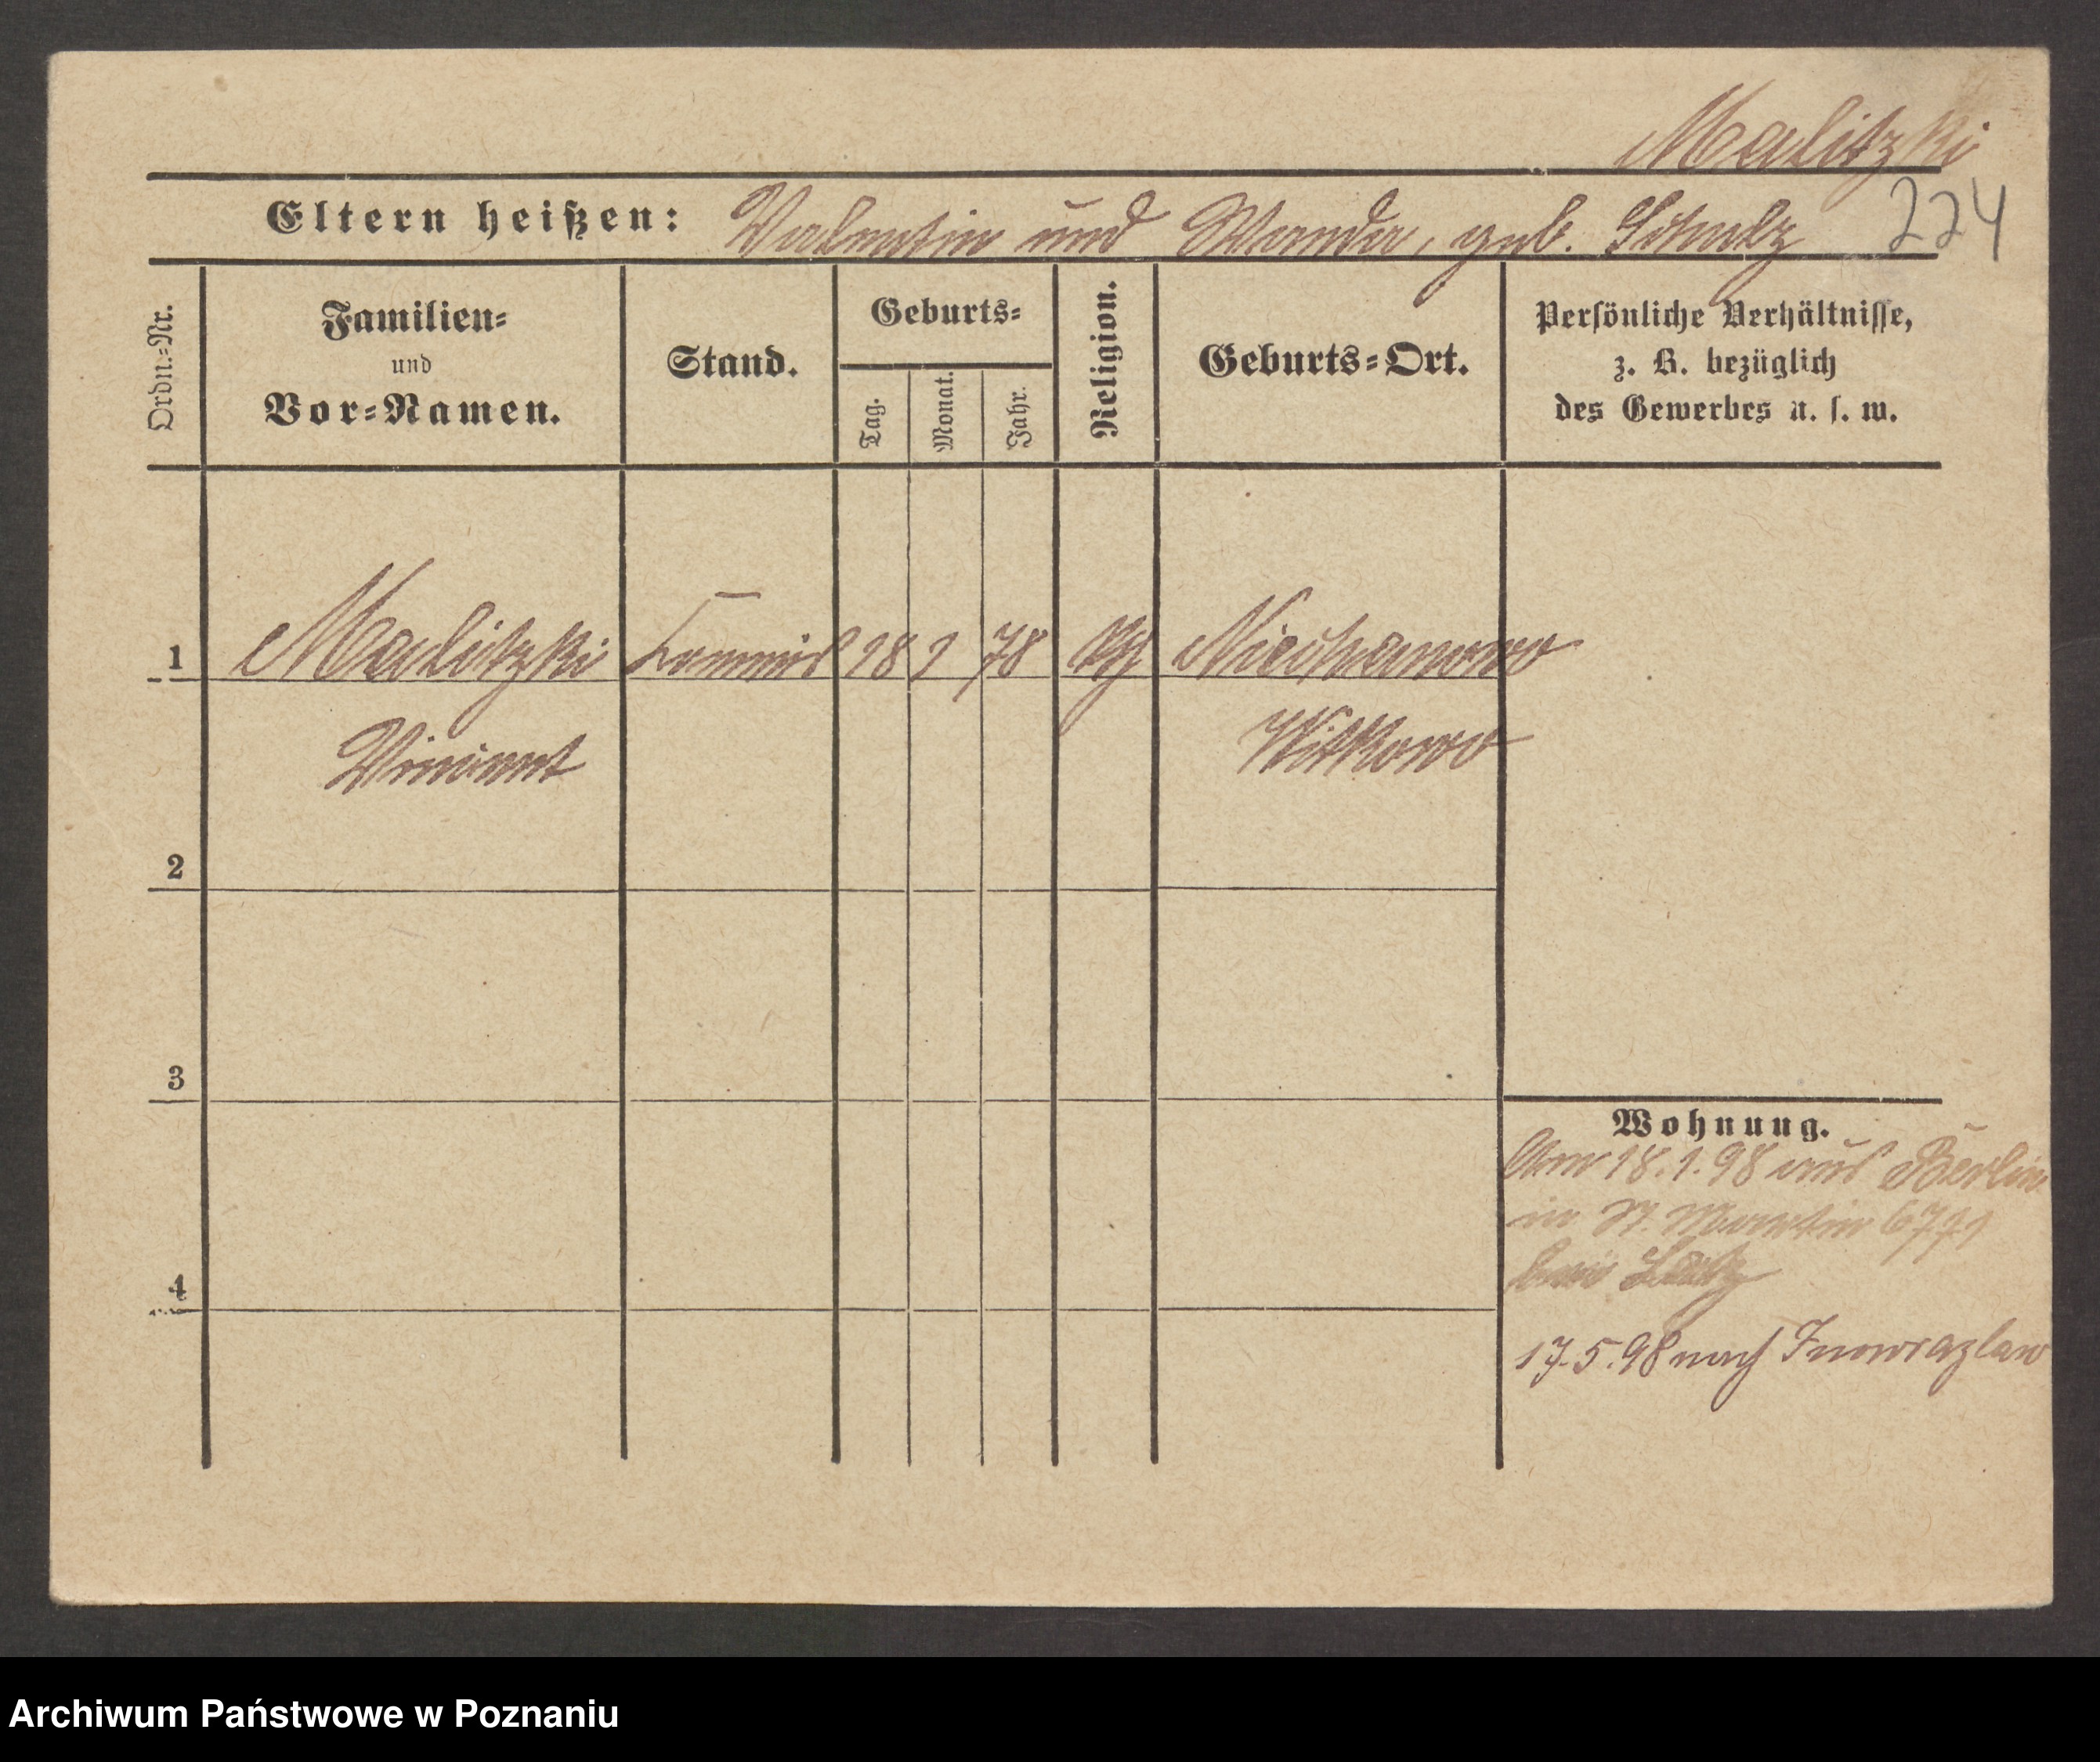 Malitzki
Eltern heißen: Valentin und Wanda, geb. Schulz 224
Ordn.=Nr.
Familien=
und
Vor=Namen.
Stand.
Geburts=
Tag.
Monat.
Jahr.
Religion.
Geburts=Ort.
Persönliche Verhältnisse,
z. B. bezüglich
des Gewerbes u. s. w.
1 Malitzki Commis 18 1 78 Niechanowo
Vincent Witkowo
2
3
4
Wohnung.
Am 18.1.98 aus Berlin
in St. Martin 67
bei
17.5.98 nach Inowrazlaw
Archiwum Państwowe w Poznaniu